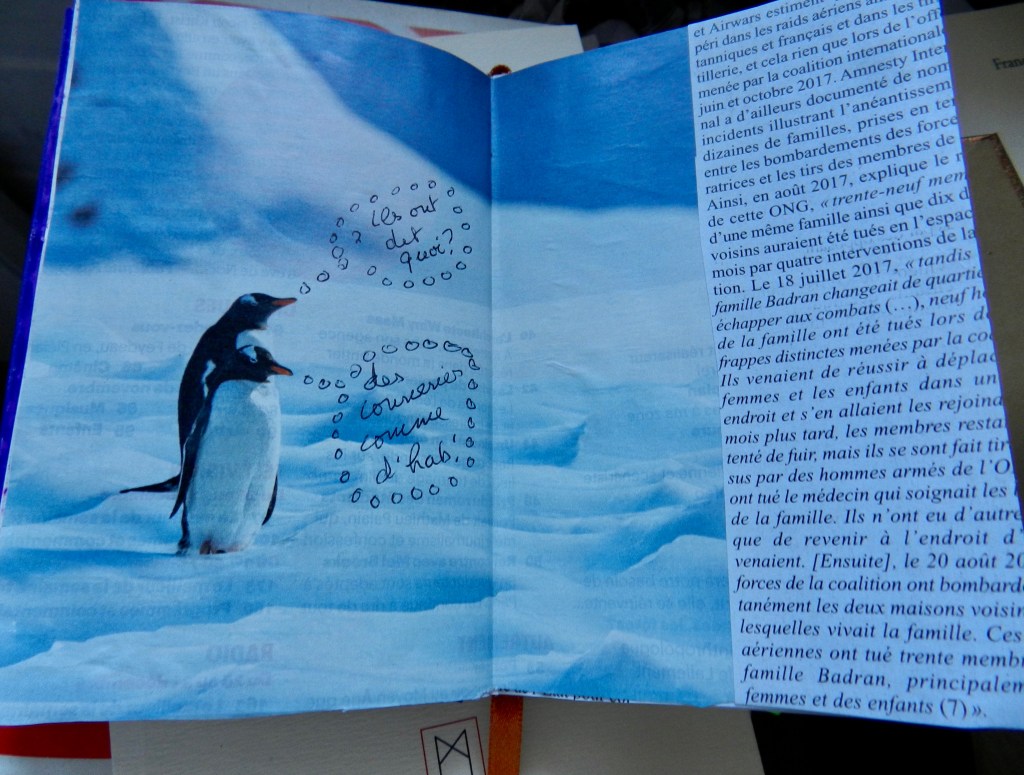 Ils ont
dit
quoi?
des
conneries
comme
d'hab!
et Airwars estiment
péri dans les raids aériens
tanniques et français et dans les
tillerie, et cela rien que lors de l'off
menée par la coalition international
juin et octobre 2017. Amnesty Inter
nal a d'ailleurs documenté de nom
incidents illustrant l'anéantissem
dizaines de familles, prises en te
entre les bombardements des force
ratrices et les tirs des membres de
Ainsi, en août 2017, explique le r
de cette ONG, « trente-neuf mem
d'une même famille ainsi que dix d
voisins auraient été tués en l'espac
mois par quatre interventions de la
tion. Le 18 juillet 2017, « tandis
famille Badran changeait de quarti
échapper aux combats (…), neuf
de la famille ont été tués lors d
frappes distinctes menées par la co
Ils venaient de réussir à déplac
femmes et les enfants dans un
endroit et s'en allaient les rejoind
mois plus tard, les membres resta
tenté de fuir, mais ils se sont fait tir
sus par des hommes armés de l'O
ont tué le médecin qui soignait les
de la famille. Ils n'ont eu d'autre
que de revenir à l'endroit d'
venaient. [Ensuite], le 20 août 20
forces de la coalition ont bombard
tanément les deux maisons voisin
lesquelles vivait la famille. Ces
aériennes ont tué trente memb
famille Badran, principalem
femmes et des enfants (7) ».
Fran